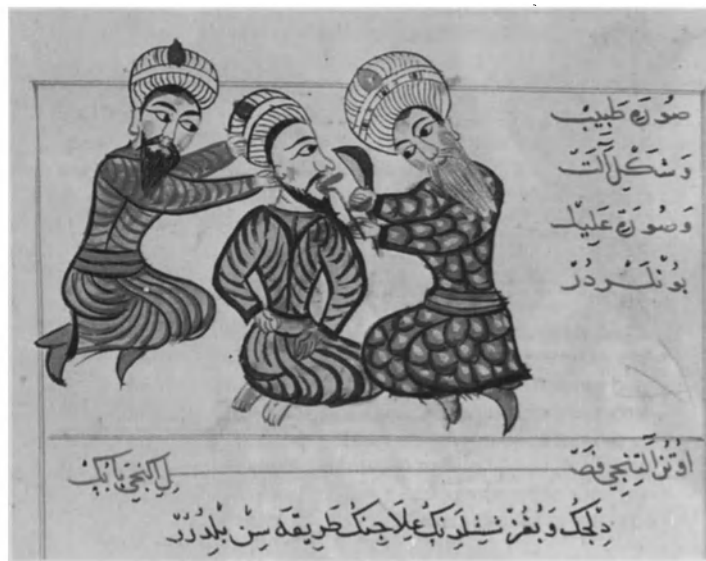 صُورَةِ طَبِيبْ
وَشَكْلِ آلَتْ
وَصُورَةِ عَلِيلْ
بُونْلَرْدُرْ
اوُتُزْ اَلْتِنْجِي فَصْلِ اِكِنْجِي بَابُكْ
دِلْجِكُ وَ بُغُزْ شِشْلَرِنُكْ عِلَاجِنُكْ طَرِيقَه سِنْ بِلْدُرُرْ